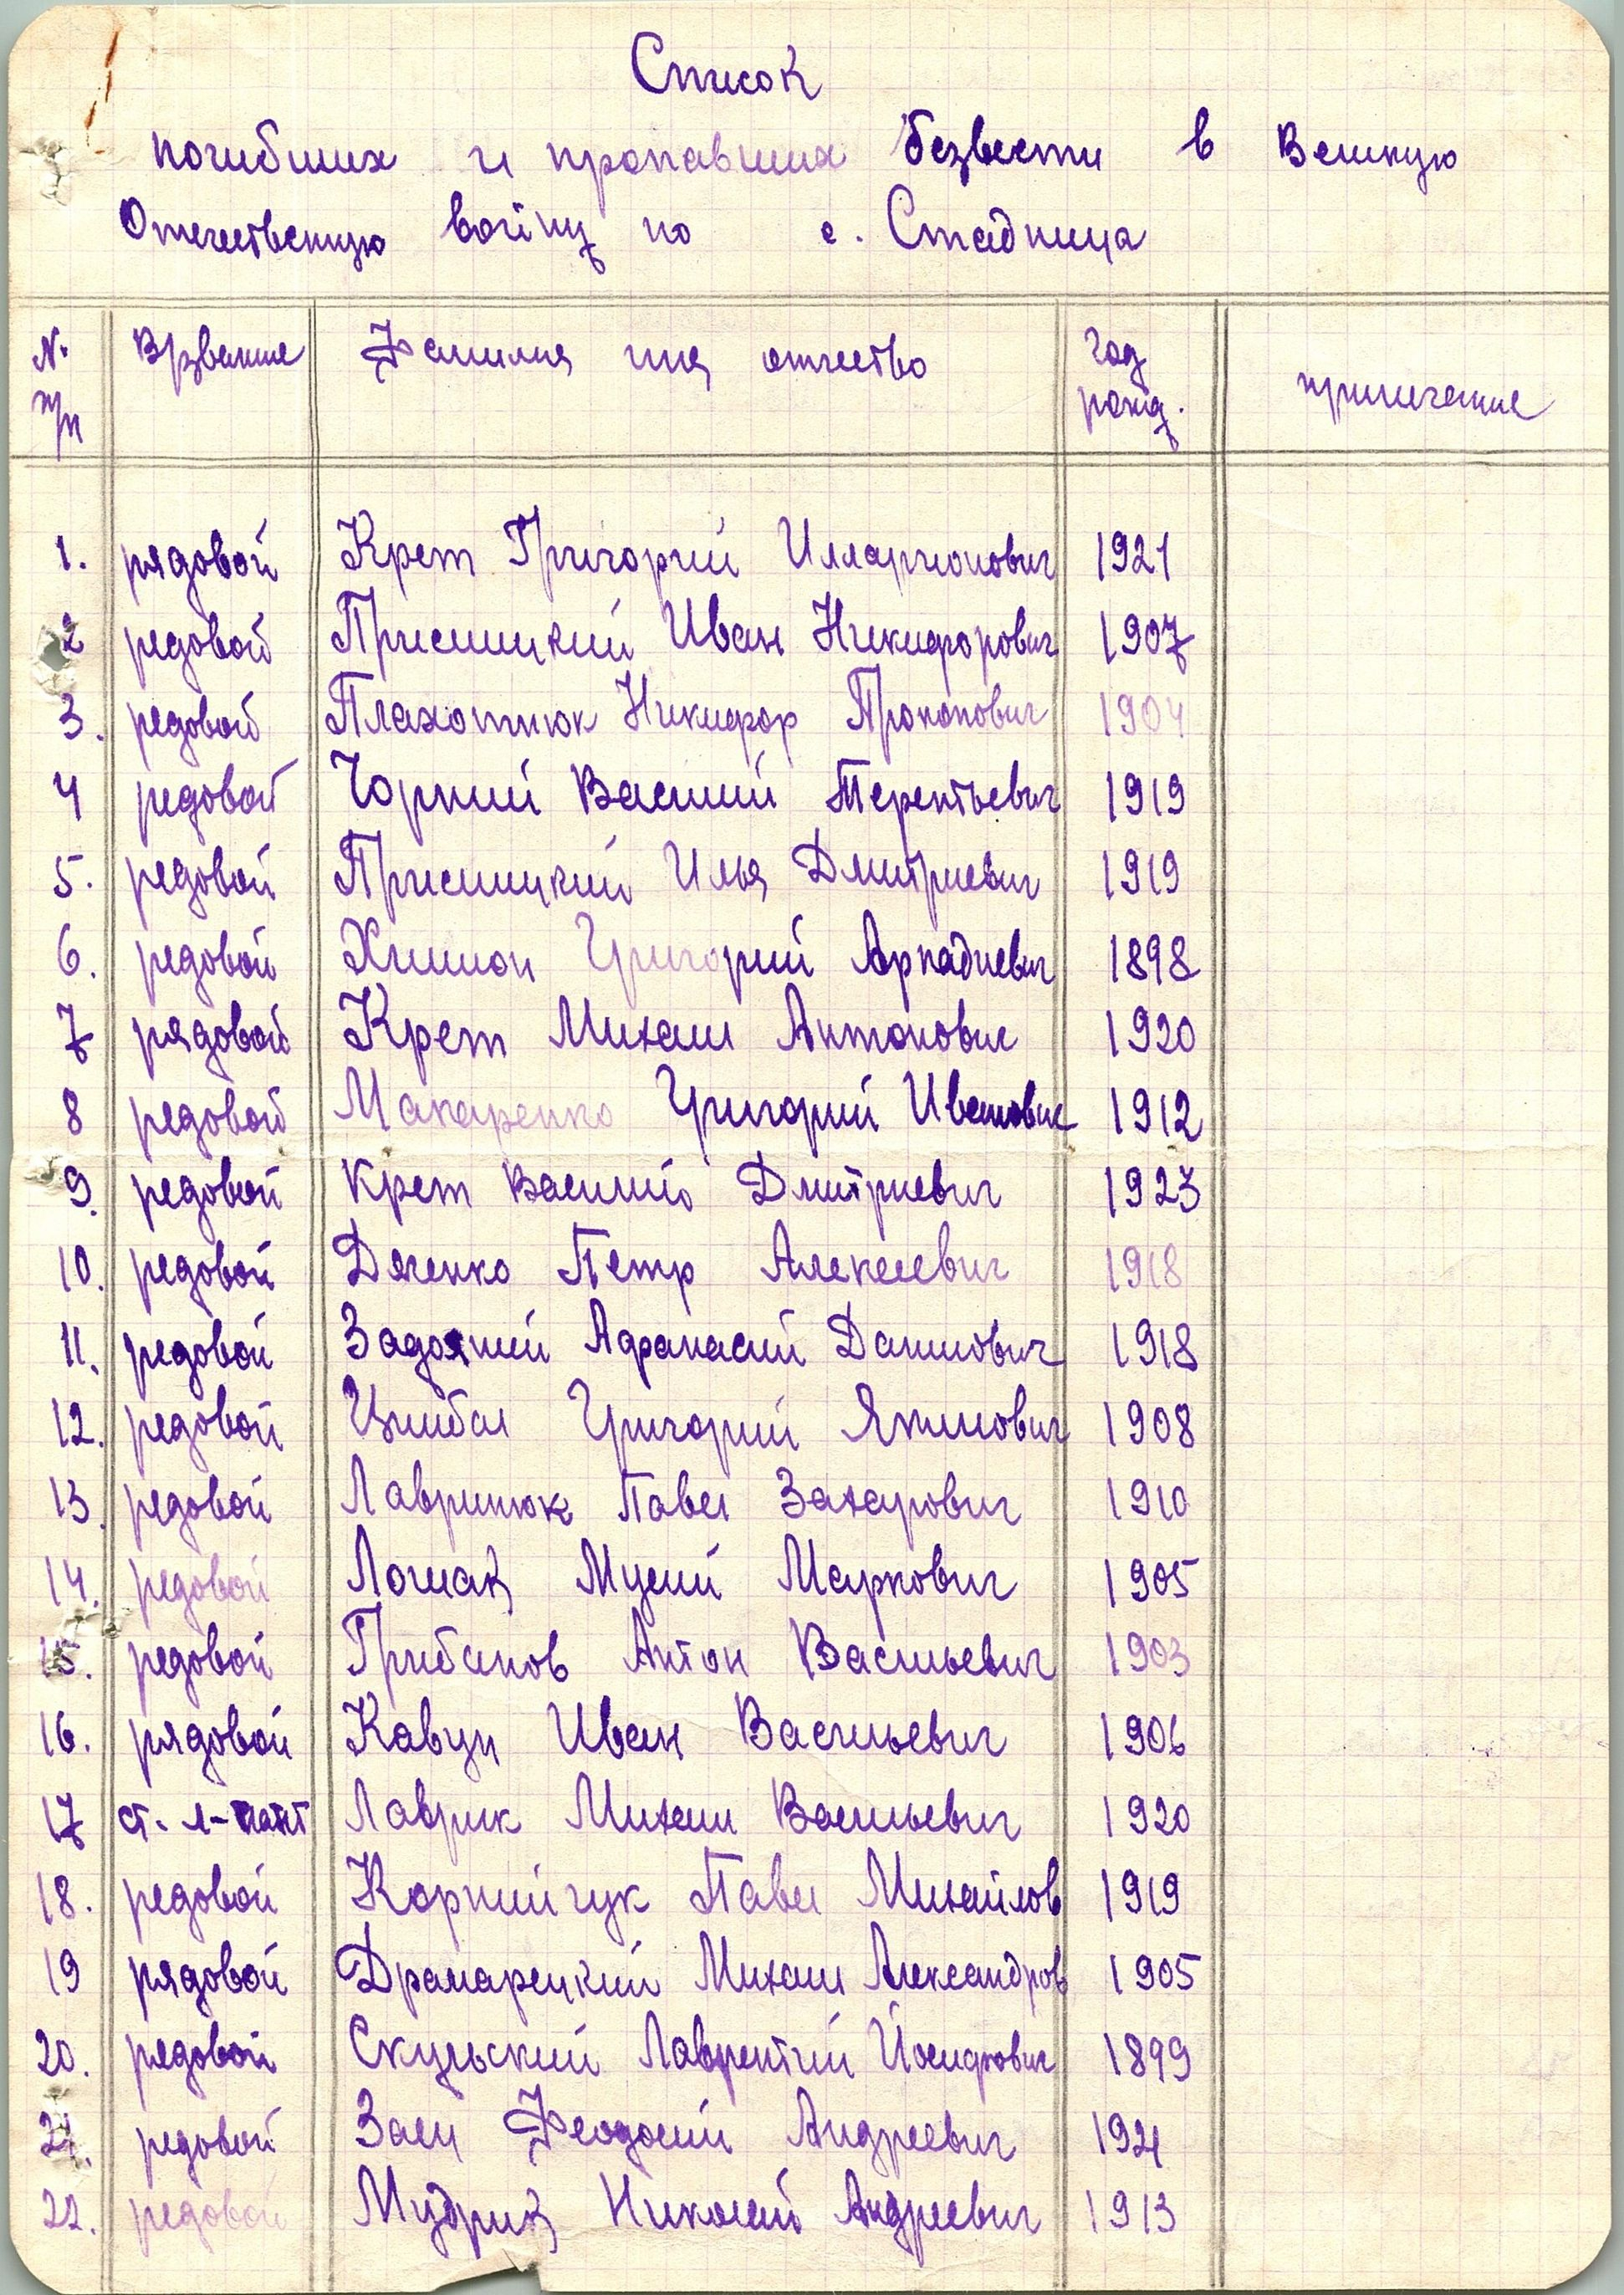 Список
погибших и пропавших безвести в Великую
Отечественную войну по с. Стадница
№ п/п Врзвание Фамилия имя отчество год рожд. примечание
1. рядовой Крет Григорий Илларионович 1921
2 редовой Присицкий Иван Никифорович 1907
3. редовой Плахотнюк Никифор Прокопович 1904
4 редовой Чорний Василий Терентьевич 1919
5. редовой Присицкий Илья Дмитриевич 1919
6. редовой Химион Григорий Аркадиевич 1898
7 рядовой Крет Михаил Антонович 1920
8 редовой Макаренко Григорий Иванович 1912
9. редовой Крет Василий Дмитриевич 1923
10. редовой Дяченко Петр Алексеевич 1918
11. редовой Задояний Афанасий Данилович 1918
12. редовой Цимбал Григорий Якимович 1908
13. редовой Лавринюк Павел Захарович 1910
14. редовой Лошак Мусий Маркович 1905
15. редовой Грибанов Антон Васильевич 1903
16. рядовой Кавун Иван Васильевич 1906
17 ст. л-нант Лаврик Михаил Васильевич 1920
18. редовой Корнийчук Павел Михайлов 1919
19 рядовой Драмарецкий Михаил Александров 1905
20. рядовой Скульский Лаврентий Йосифович 1899
21. редовой Заец Феодосий Андреевич 1921
22. редовой Мудрик Николай Андреевич 1913